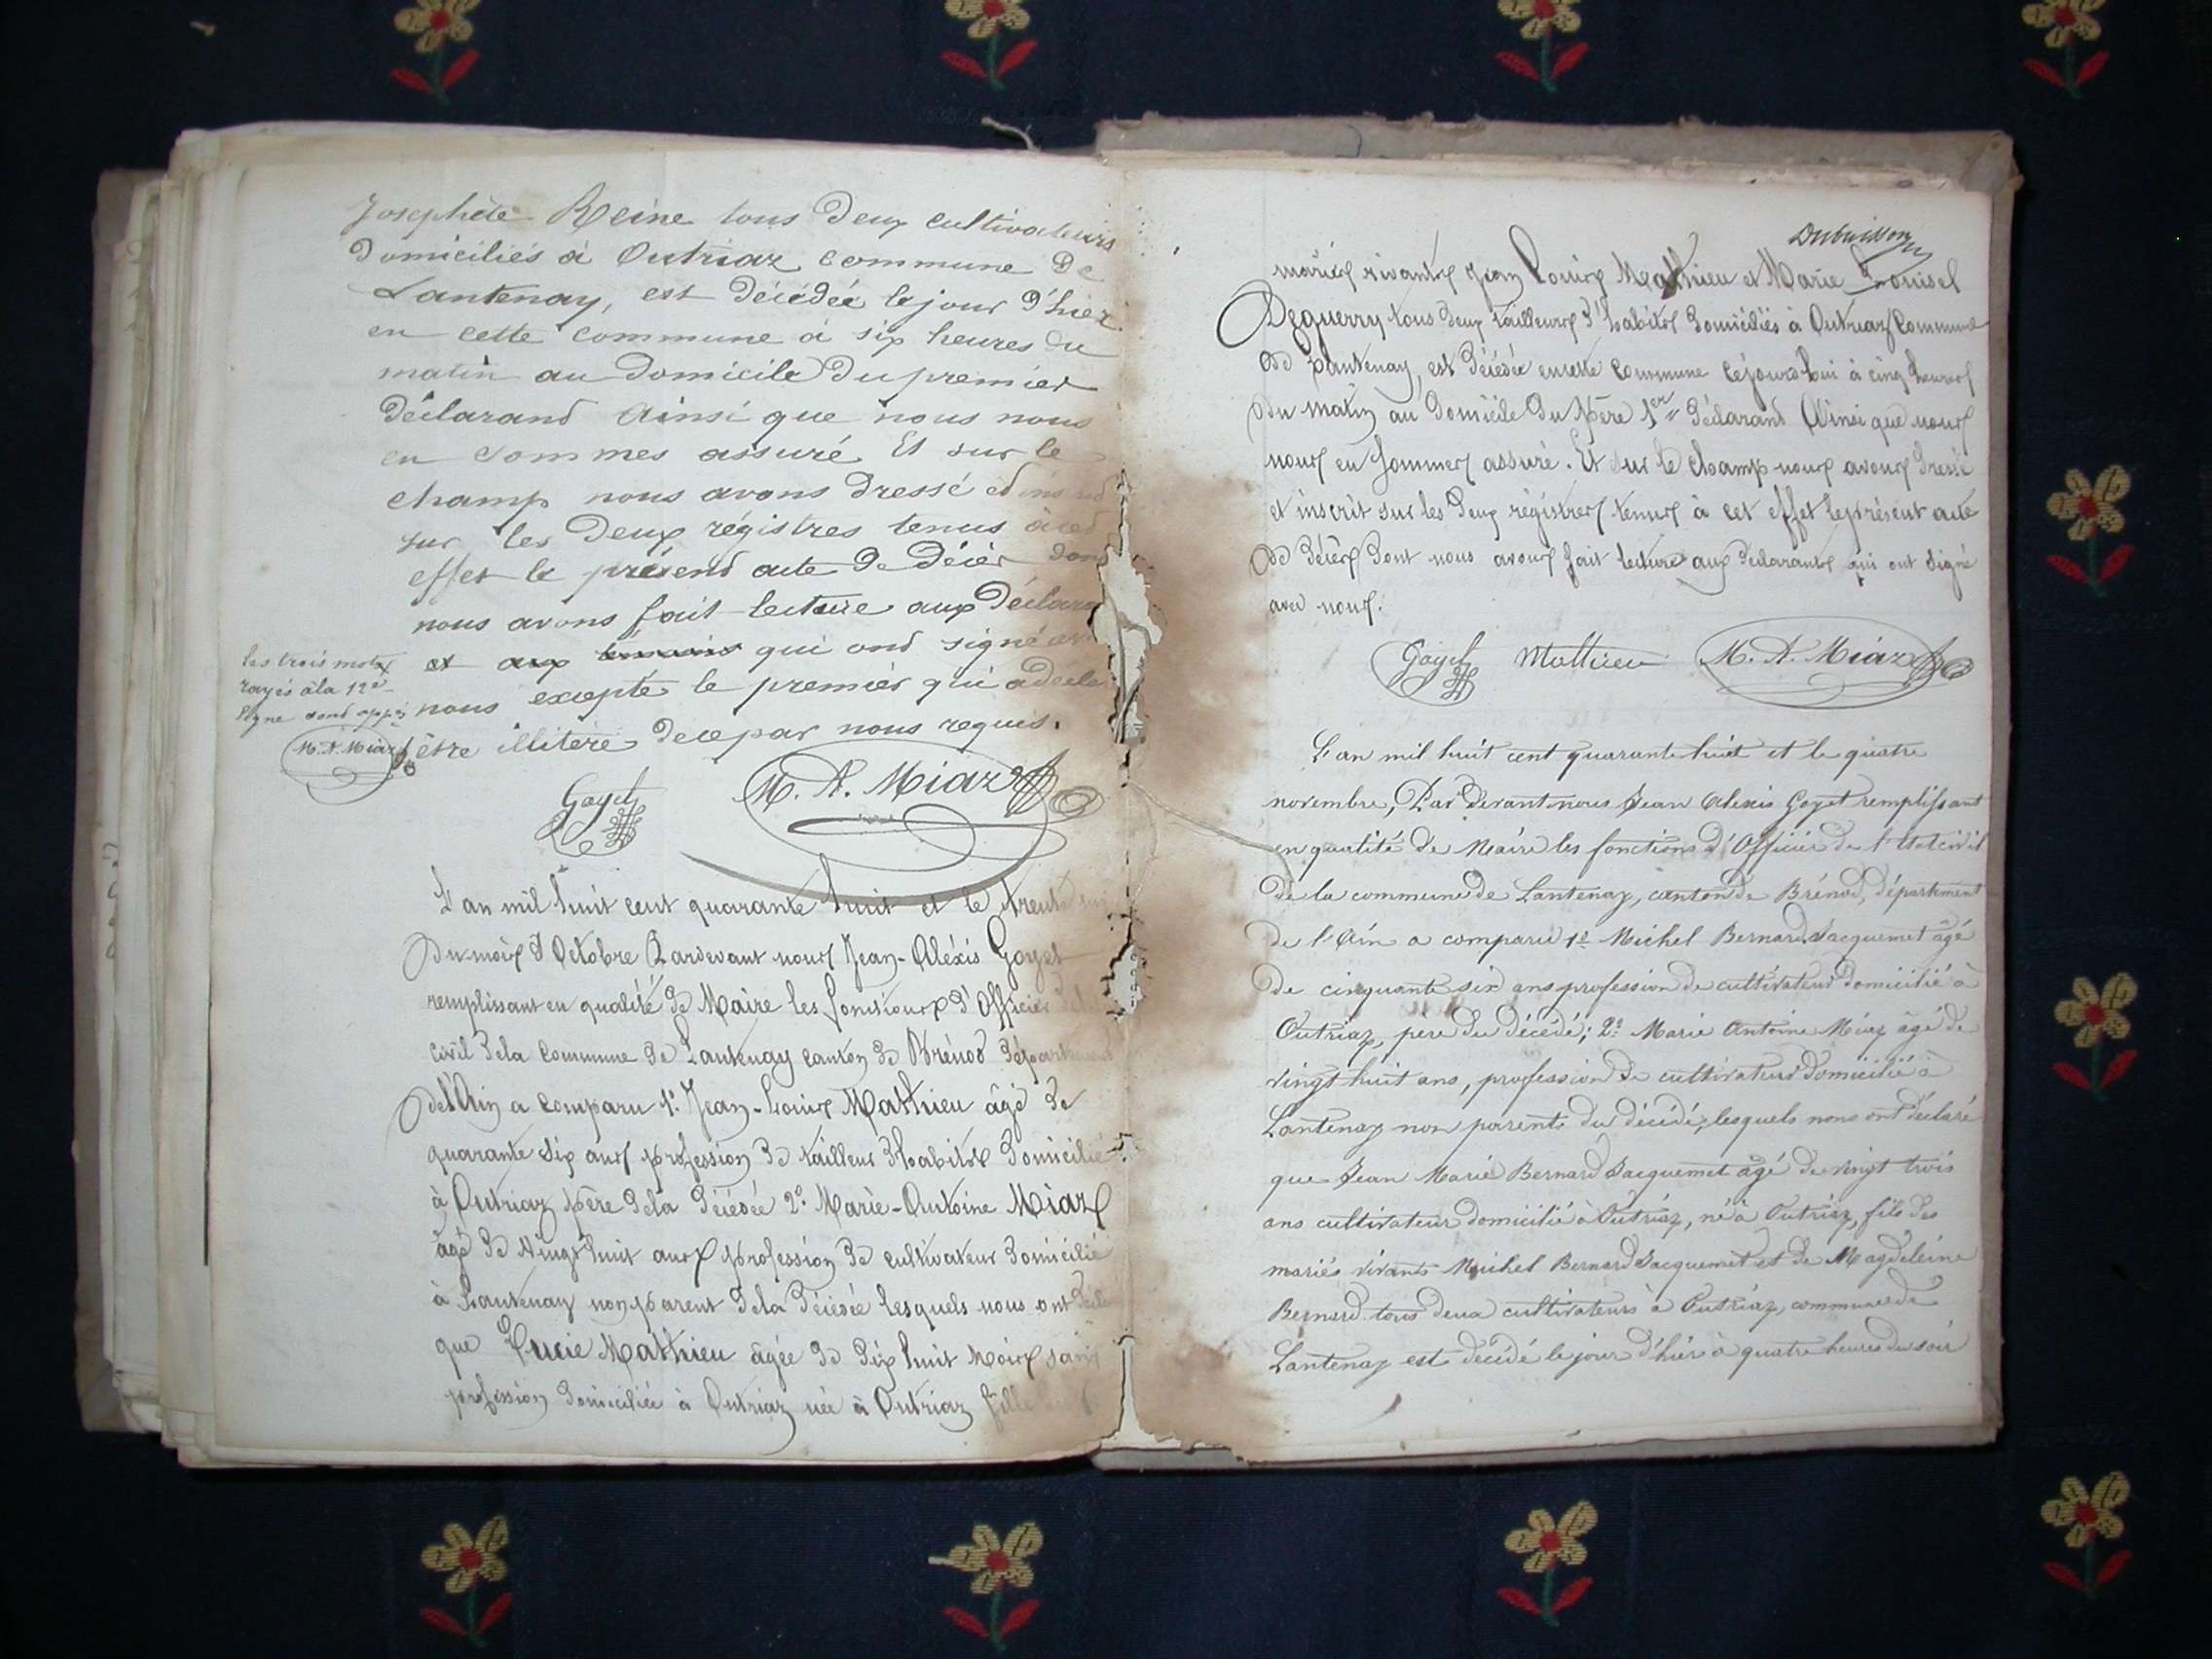 Josephete Reine tous deux cultivateurs
domiciliés à Outriaz commune de
Lantenay, est décédée le jour d'hier
en cette commune à six heures du
matin au domicile du premier
déclarand Ainsi que nous nous
en sommes assuré Et sur le
champ nous avons dressé et
sur les deux régistres tenus à
effet le présend acte de décès
nous avons fait lecture aux
et aux témoins qui ond signé
nous excepté le premier qui a
être illitéré de ce par nous requis.
les trois mots
rayés à la 12e
ligne sond
M. A. Miaz
Goyet M. A. Miaz
L'an mil huit cent quarante huit et le trente
du mois d'Octobre Pardevant nous Jean-Aléxis Goyet
remplissant en qualité de Maire les fonctions d'Officier
civil de la Commune de Lantenay canton de Brénod département
de l'Ain a comparu 1° Jean-Louis Mathieu âgé de
quarante six ans profession de tailleur d'habits domicilié
à Outriaz père de la décédée 2° Marie-Antoine Miaz
âgé de Vingt huit ans profession de cultivateur domicilié
à Lantenay non parent de la décédée lesquels nous ont
que Lucie Mathieu âgée de dix huit Mois sans
profession domiciliée à Outriaz née à Outriaz fille
Dubuisson
mariés vivants Jean Louis Mathieu et Marie Louise
Deguerry tous deux tailleurs d'habits domiciliés à Outriaz Commune
de Lantenay, est décédée en cette commune cejourd'hui à cinq heures
du matin au domicile du Père 1er déclarant Ainsi que nous
nous en sommes assuré. Et sur le champ nous avons dressé
et inscrit sur les deux régistres tenus à cet effet le présent acte
de décès dont nous avons fait lecture aux déclarants qui ont signé
avec nous.
Goyet Mathieu M. A. Miaz
L'an mil huit cent quarante huit et le quatre
novembre, Par devant nous Jean Alexis Goyet remplissant
en qualité de Maire les fonctions d'Officier de l'Etat civil
de la commune de Lantenay, canton de Brénod, département
de l'Ain a comparu 1° Michel Bernard Jacquemet âgé
de cinquante six ans profession de cultivateur domicilié à
Outriaz, père du décédé; 2° Marie Antoine Miaz âgé de
vingt huit ans, profession de cultivateur domicilié à
Lantenay non parent du décédé, lesquels nous ont déclaré
que Jean Marie Bernard Jacquemet âgé de vingt trois
ans cultivateur domicilié à Outriaz, né à Outriaz, fils des
mariés vivants Michel Bernard Jacquemet et de Magdeleine
Bernard tous deux cultivateurs à Outriaz, commune de
Lantenay est décédé le jour d'hier à quatre heures du soir